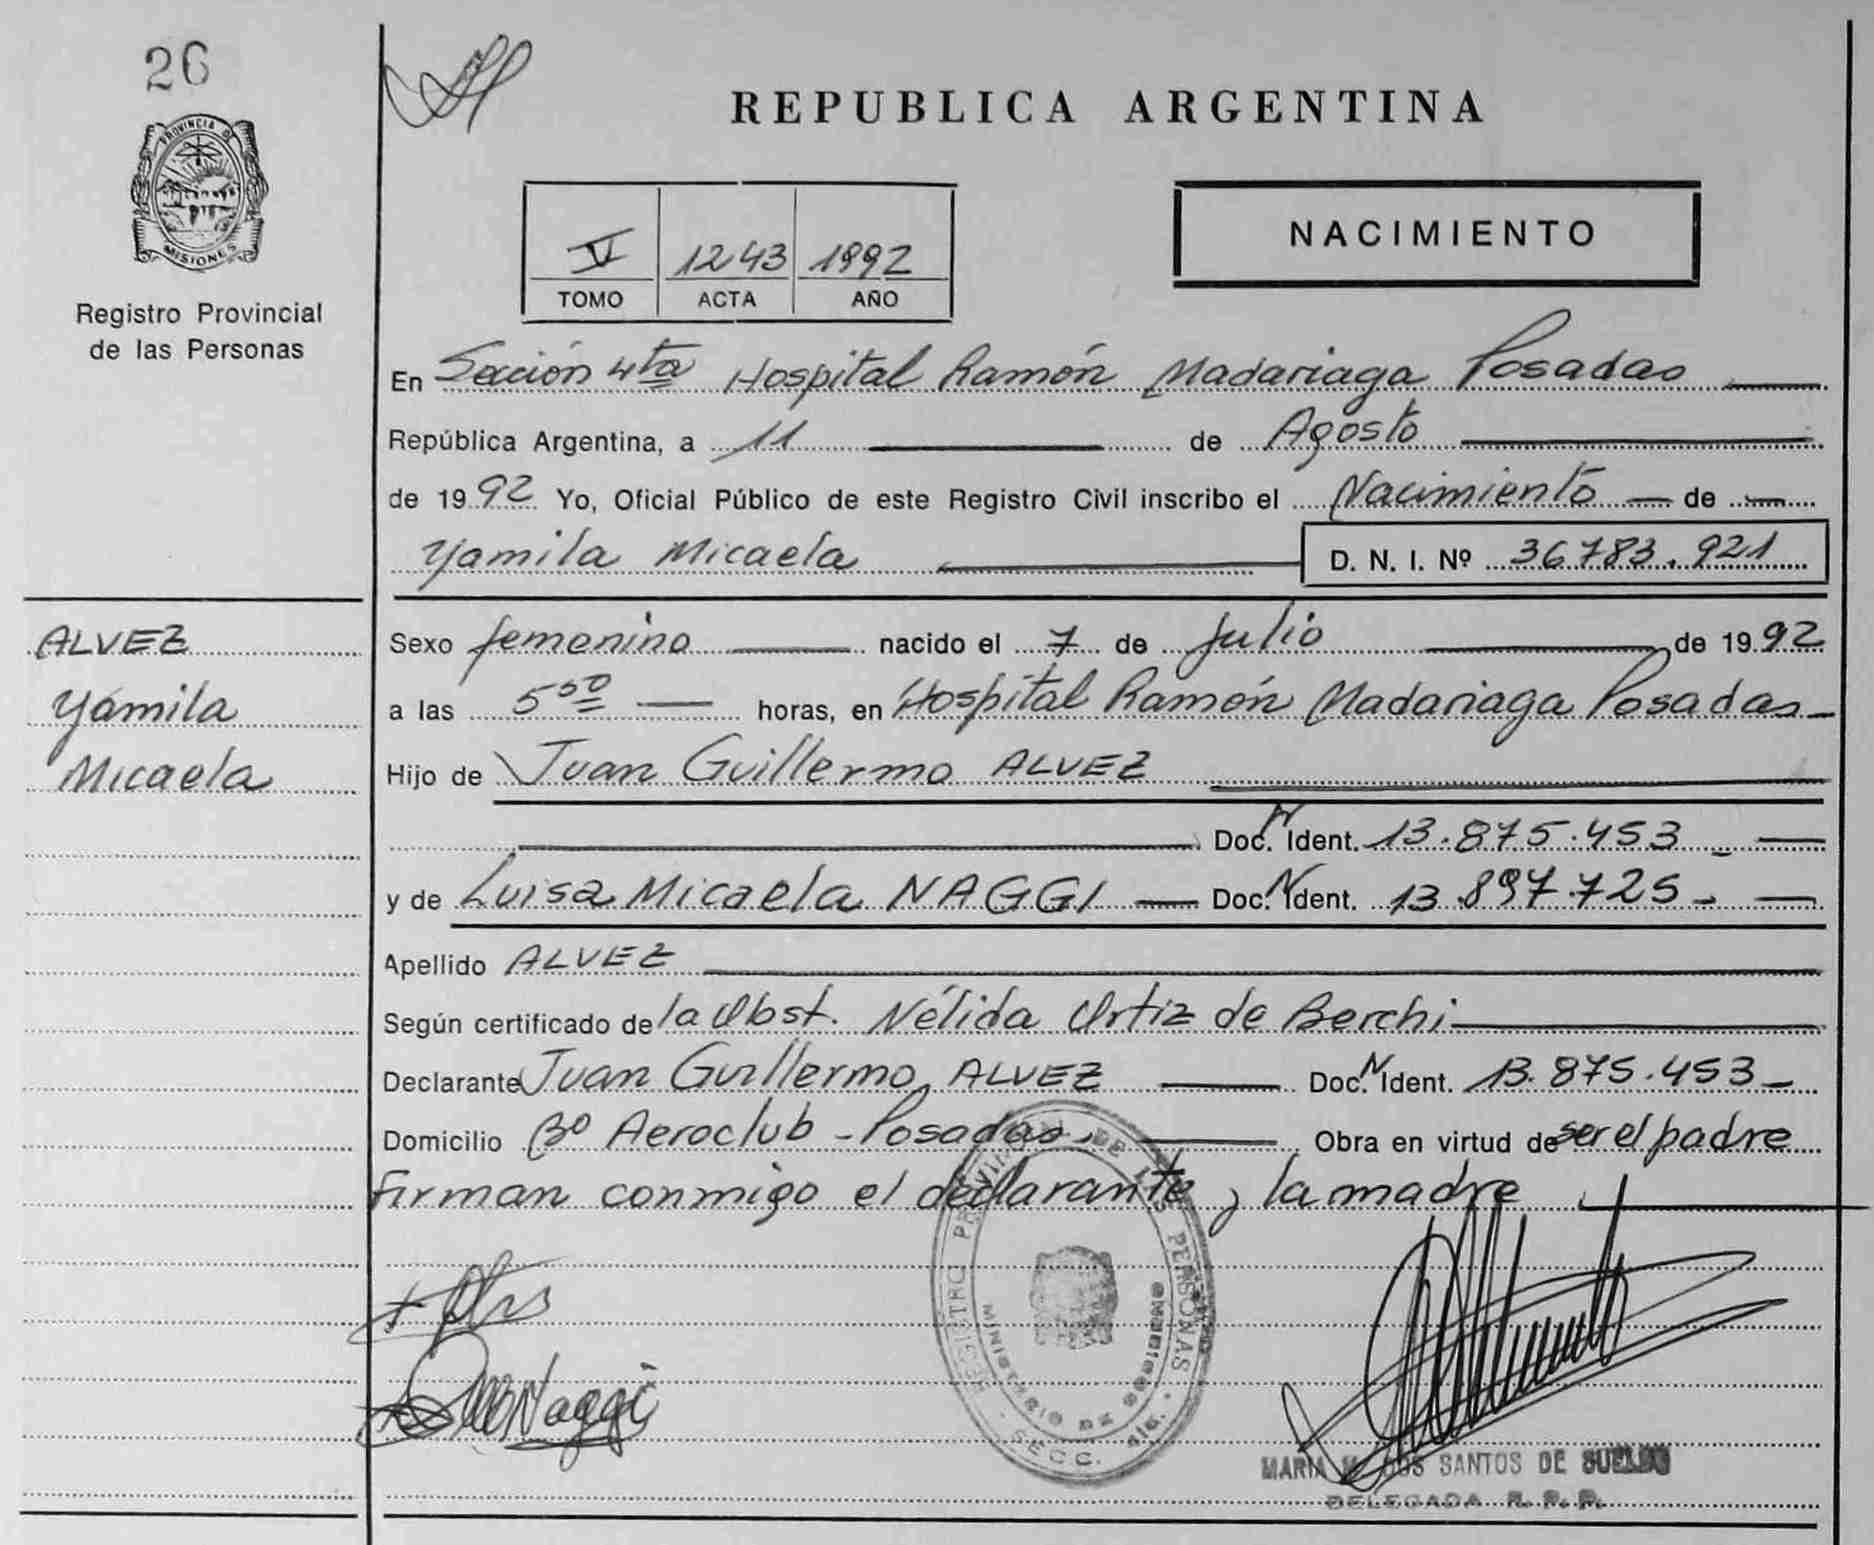 26
PROVINCIA D
MISIONES
Registro Provincial
de las Personas
REPUBLICA ARGENTINA
V 1243 1992
TOMO ACTA AÑO
NACIMIENTO
En Sección 4ta Hospital Ramón Madariaga Posadas
República Argentina, a 11 de Agosto
de 1992 Yo, Oficial Público de este Registro Civil inscribo el Nacimiento de
Yamila Micaela D. N. I. Nº 36783.921
ALVEZ
Yamila
Micaela
Sexo femenino nacido el 7 de Julio de 1992
a las 5 50 horas, en Hospital Ramón Madariaga Posadas
Hijo de Juan Guillermo ALVEZ
Doc. N Ident. 13.875.453
y de Luisa Micaela NAGGI Doc. N Ident. 13.897.725
Apellido ALVEZ
Según certificado de la Obst. Nélida Ortiz de Berchi
Declarante Juan Guillermo ALVEZ Doc. N Ident. 13.875.453
Domicilio Bº Aeroclub - Posadas. Obra en virtud de ser el padre
firman conmigo el declarante y la madre
Naggi
REGISTRO PROVINCIAL DE LAS PERSONAS
MINISTERIO DE GOBIERNO
SECC.
MARIA M. DOS SANTOS DE SUELDO
DELEGADA R. P. P.